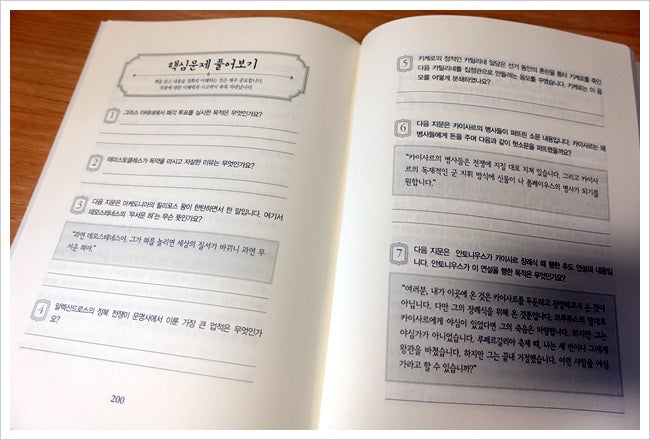 핵심문제 풀어보기
책을 읽고 내용을 정확히 이해하는 것은 매우 중요합니다.
작품에 대한 이해력과 사고력이 쑥쑥 자라납니다.
1 그리스 아테네에서 패각 투표를 실시한 목적은 무엇인가요?
2 테미스토클레스가 독약을 마시고 자살한 이유는 무엇인가요?
3 다음 지문은 마케도니아의 필리포스 왕이 한탄하면서 한 말입니다. 여기서
데모스테네스의 '무서운 혀'는 무슨 뜻인가요?
"과연 데모스테네스야. 그가 혀를 놀리면 세상의 질서가 바뀌니 과연 무
서운 혀야."
4 알렉산드로스의 정복 전쟁이 문명사에서 이룬 가장 큰 업적은 무엇인가
요?
200
5 키케로의 정적인 카틸리네 일당은 선거 동안의 혼란을 틈타 키케로를 죽인
다음 카틸리네를 집정관으로 만들려는 음모를 꾸몄습니다. 키케로는 이 음
모를 어떻게 분쇄하였나요?
6 다음 지문은 카이사르의 병사들이 퍼뜨린 소문 내용입니다. 카이사르는 왜
병사들에게 돈을 주며 다음과 같이 헛소문을 퍼뜨렸을까요?
"카이사르의 병사들은 전쟁에 지칠 대로 지쳐 있습니다. 그리고 카이사
르의 독재적인 군 지휘 방식에 신물이 나 폼페이우스의 병사가 되기를
원합니다."
7 다음 지문은 안토니우스가 카이사르 장례식 때 행한 추도 연설의 내용입
니다. 안토니우스가 이 연설을 행한 목적은 무엇인가요?
"여러분, 내가 이곳에 온 것은 카이사르를 두둔하고 찬양하고자 온 것이
아닙니다. 다만 그의 장례식을 위해 온 것뿐입니다. 브루투스의 말대로
카이사르에게 야심이 있었다면 그의 죽음은 마땅합니다. 하지만 그는
야심가가 아니었습니다. 루페르칼리아 축제 때, 나는 세 번이나 그에게
왕관을 바쳤습니다. 하지만 그는 끝내 거절했습니다. 이런 사람을 야심
가라고 할 수 있습니까?"